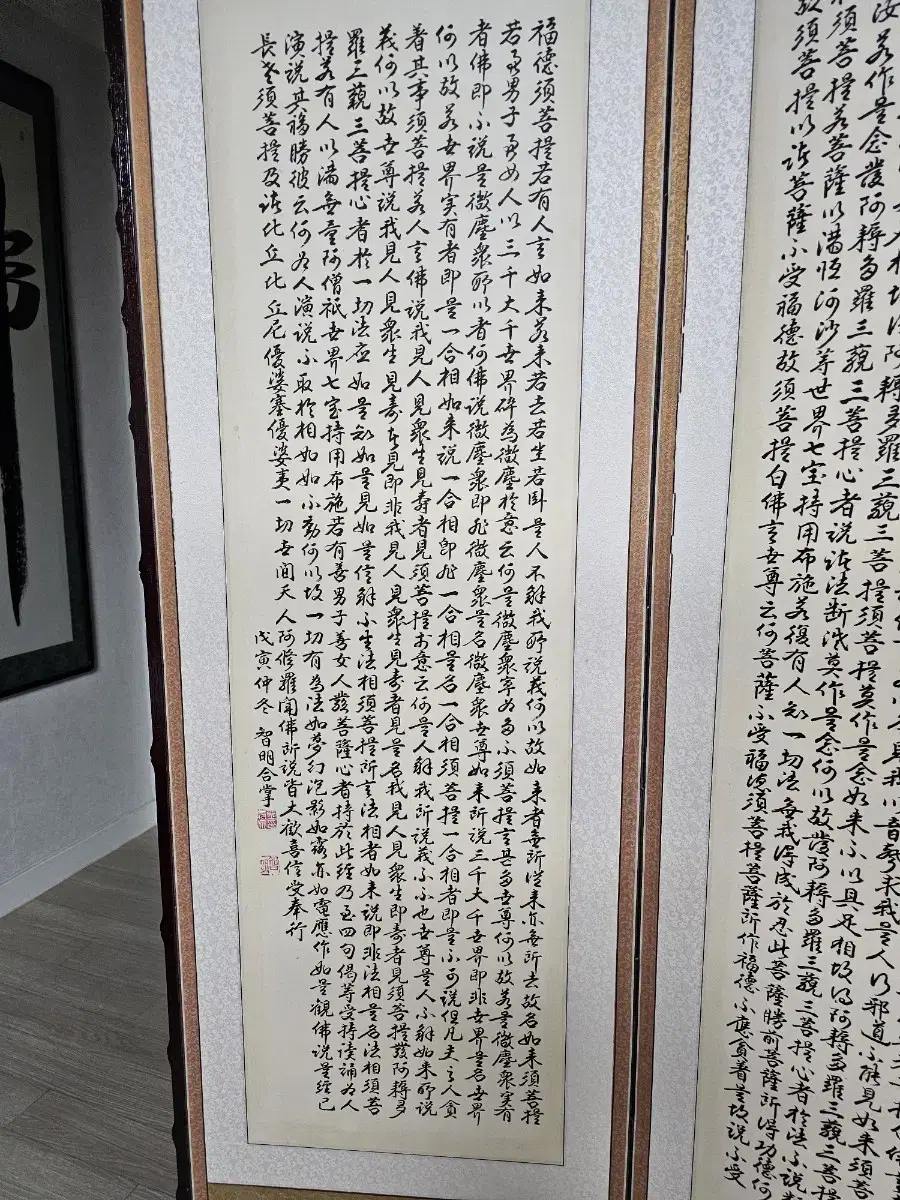 我以音聲求我是人行邪道不能見如来須菩
阿耨多羅三藐三菩提須菩提莫作是念如来不以具足相故得阿耨多羅三藐三菩提
汝若作是念發阿耨多羅三藐三菩提心者說諸法断滅莫作是念何以故發阿耨多羅三藐三菩提心者於法不說
須菩提若菩薩以滿恒河沙等世界七宝持用布施若復有人知一切法無我得成於忍此菩薩勝前菩薩所得功德何
故須菩提以諸菩薩不受福德故須菩提白佛言世尊云何菩薩不受福德須菩提菩薩所作福德不應貪著是故說不受
福德須菩提若有人言如来若来若去若坐若卧是人不解我所說義何以故如来者無所從来亦無所去故名如来須菩提
若善男子善女人以三千大千世界碎為微塵於意云何是微塵衆寧為多不須菩提言甚多世尊何以故若是微塵衆实有
者佛即不說是微塵衆所以者何佛說微塵衆即非微塵衆是名微塵衆世尊如来所說三千大千世界即非世界是名世界
何以故若世界实有者即是一合相如来說一合相即非一合相是名一合相須菩提一合相者即是不可說但凡夫之人貪
著其事須菩提若人言佛說我見人見衆生見壽者見須菩提於意云何是人解我所說義不不也世尊是人不解如来所說
義何以故世尊說我見人見衆生見壽者見即非我見人見衆生見壽者見是名我見人見衆生即壽者見須菩提發阿耨多
羅三藐三菩提心者於一切法應如是知如是見如是信解不生法相須菩提所言法相者如来說即非法相是名法相須菩
提若有人以滿無量阿僧祇世界七宝持用布施若有善男子善女人發菩薩心者持於此經乃至四句偈等受持讀誦為人
演說其福勝彼云何為人演說不取於相如如不動何以故一切有為法如夢幻泡影如露亦如電應作如是觀佛說是經已
長老須菩提及諸比丘比丘尼優婆塞優婆夷一切世間天人阿修羅聞佛所說皆大歡喜信受奉行
戊寅仲冬 智明合掌